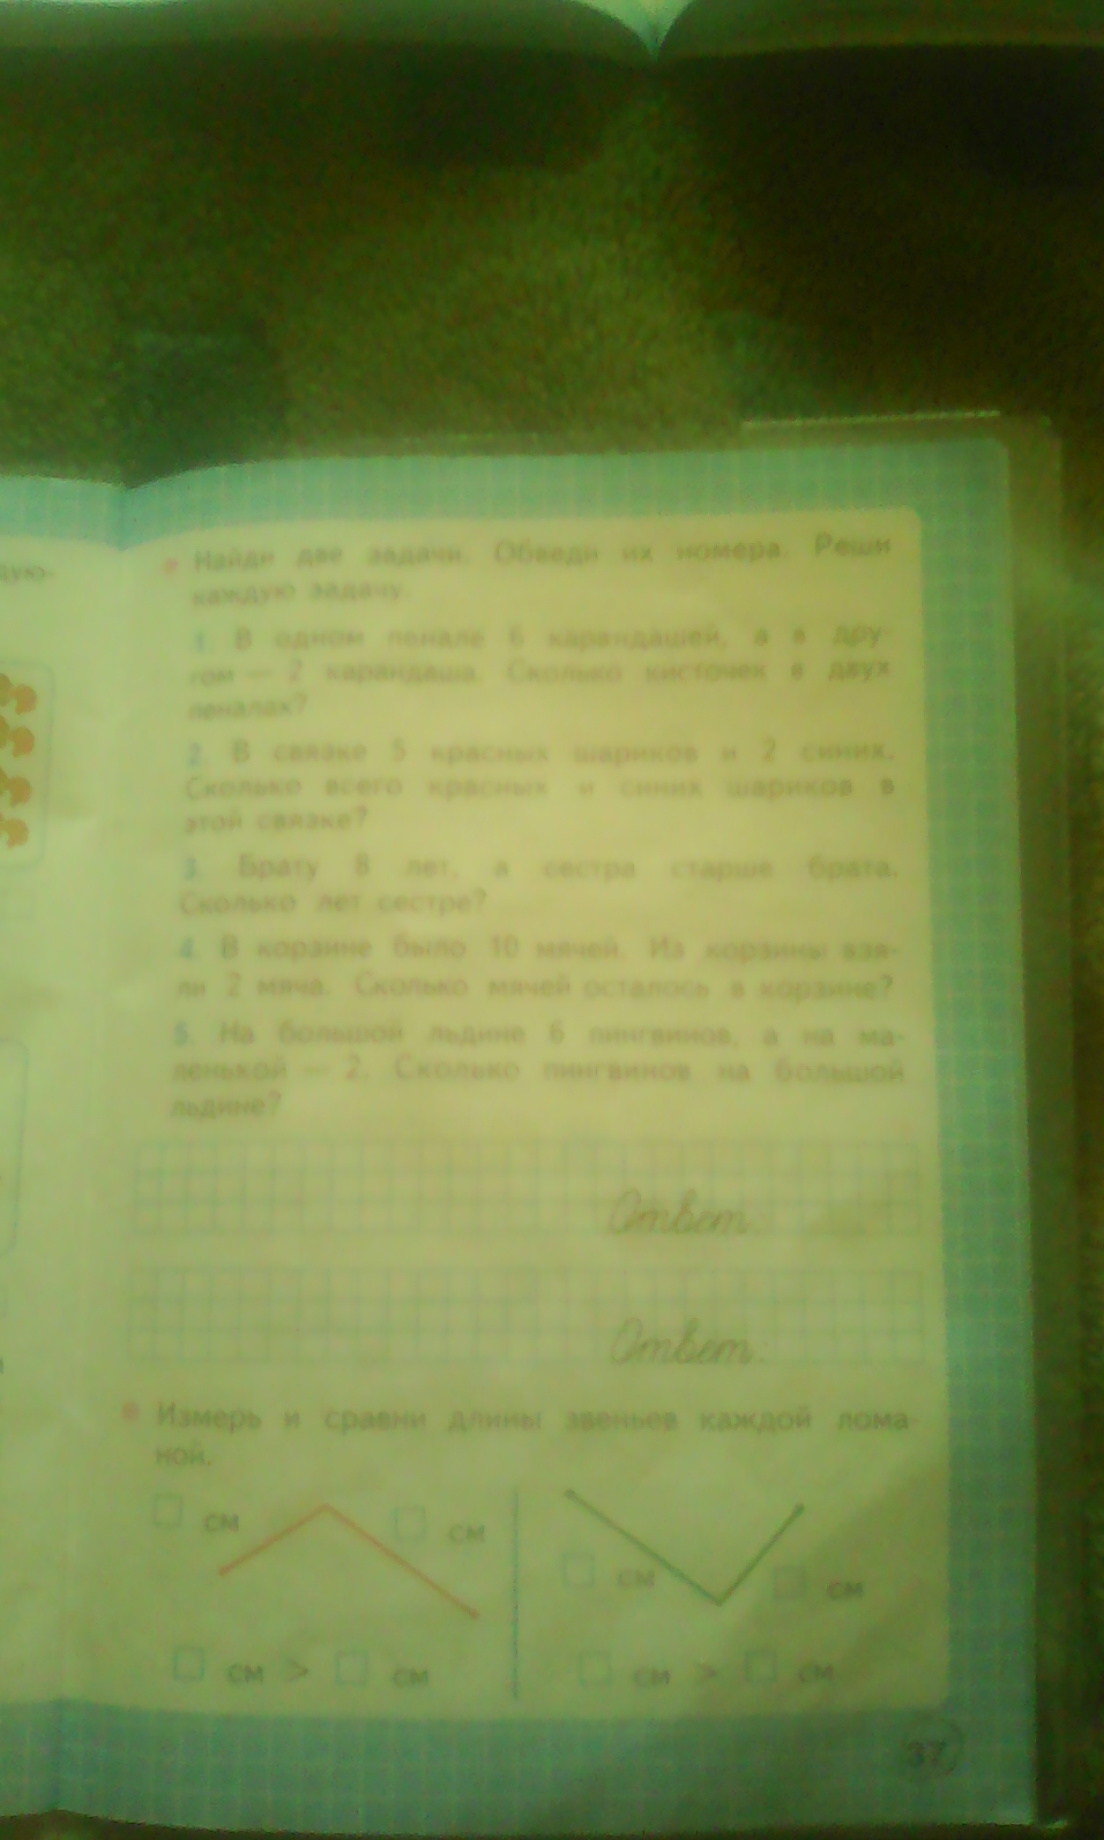 Найди две задачи. Обведи их номера. Реши
каждую задачу.
1. В одном пенале 6 карандашей, а в дру-
гом — 2 карандаша. Сколько кисточек в двух
пеналах?
2. В связке 5 красных шариков и 2 синих.
Сколько всего красных и синих шариков в
этой связке?
3. Брату 8 лет, а сестра старше брата.
Сколько лет сестре?
4. В корзине было 10 мячей. Из корзины взя-
ли 2 мяча. Сколько мячей осталось в корзине?
5. На большой льдине 6 пингвинов, а на ма-
ленькой — 2. Сколько пингвинов на большой
льдине?
Ответ:
Ответ:
Измерь и сравни длины звеньев каждой лома-
ной.
см см см см
см > см см > см
37